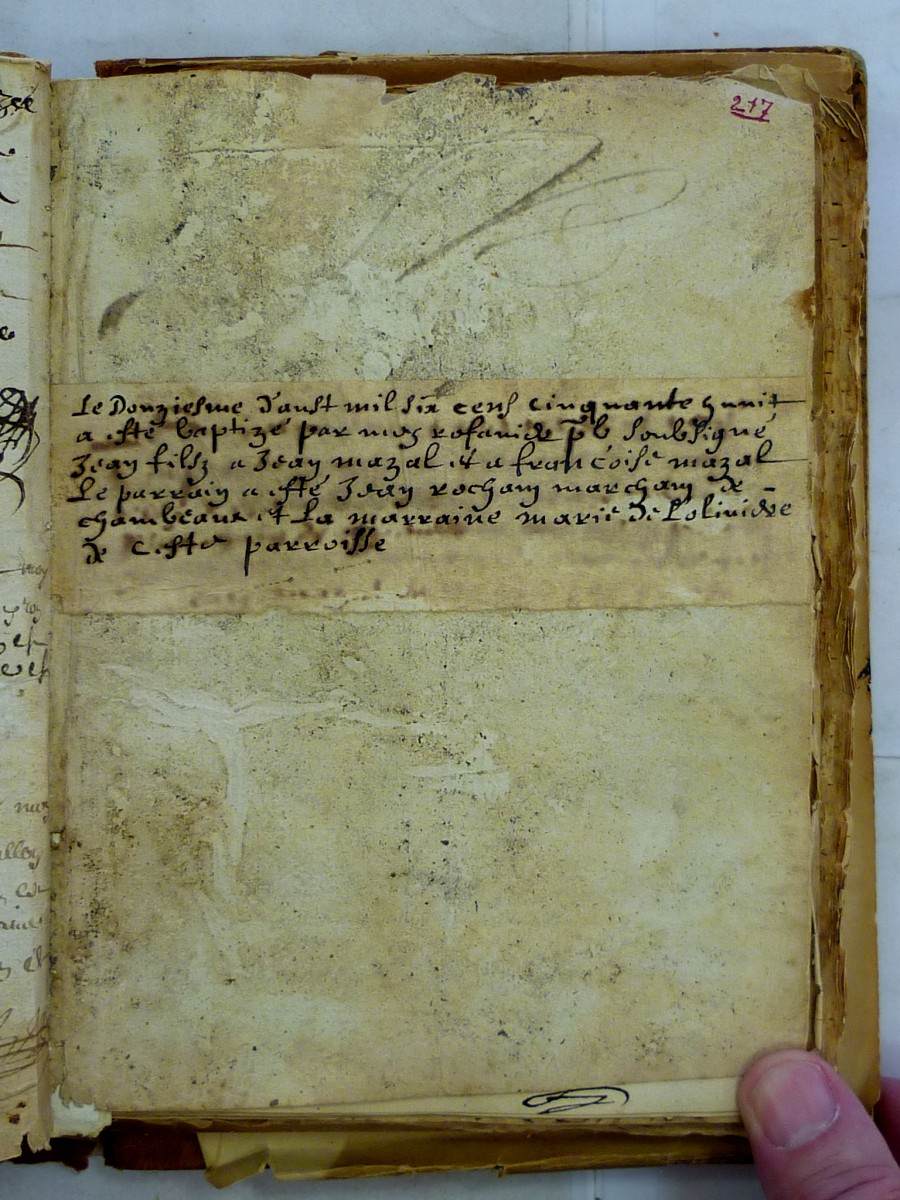 217
Le Douziesme d'aust mil six cens cinquante huuit
a esté baptizé par moy pb soubsigné
Jean filz a Jean mazal et a francoise mazal
Le parrain a esté Jean rochain marchain de -
chambeaux et La marraine marie de Lolivière
de ceste parroisse